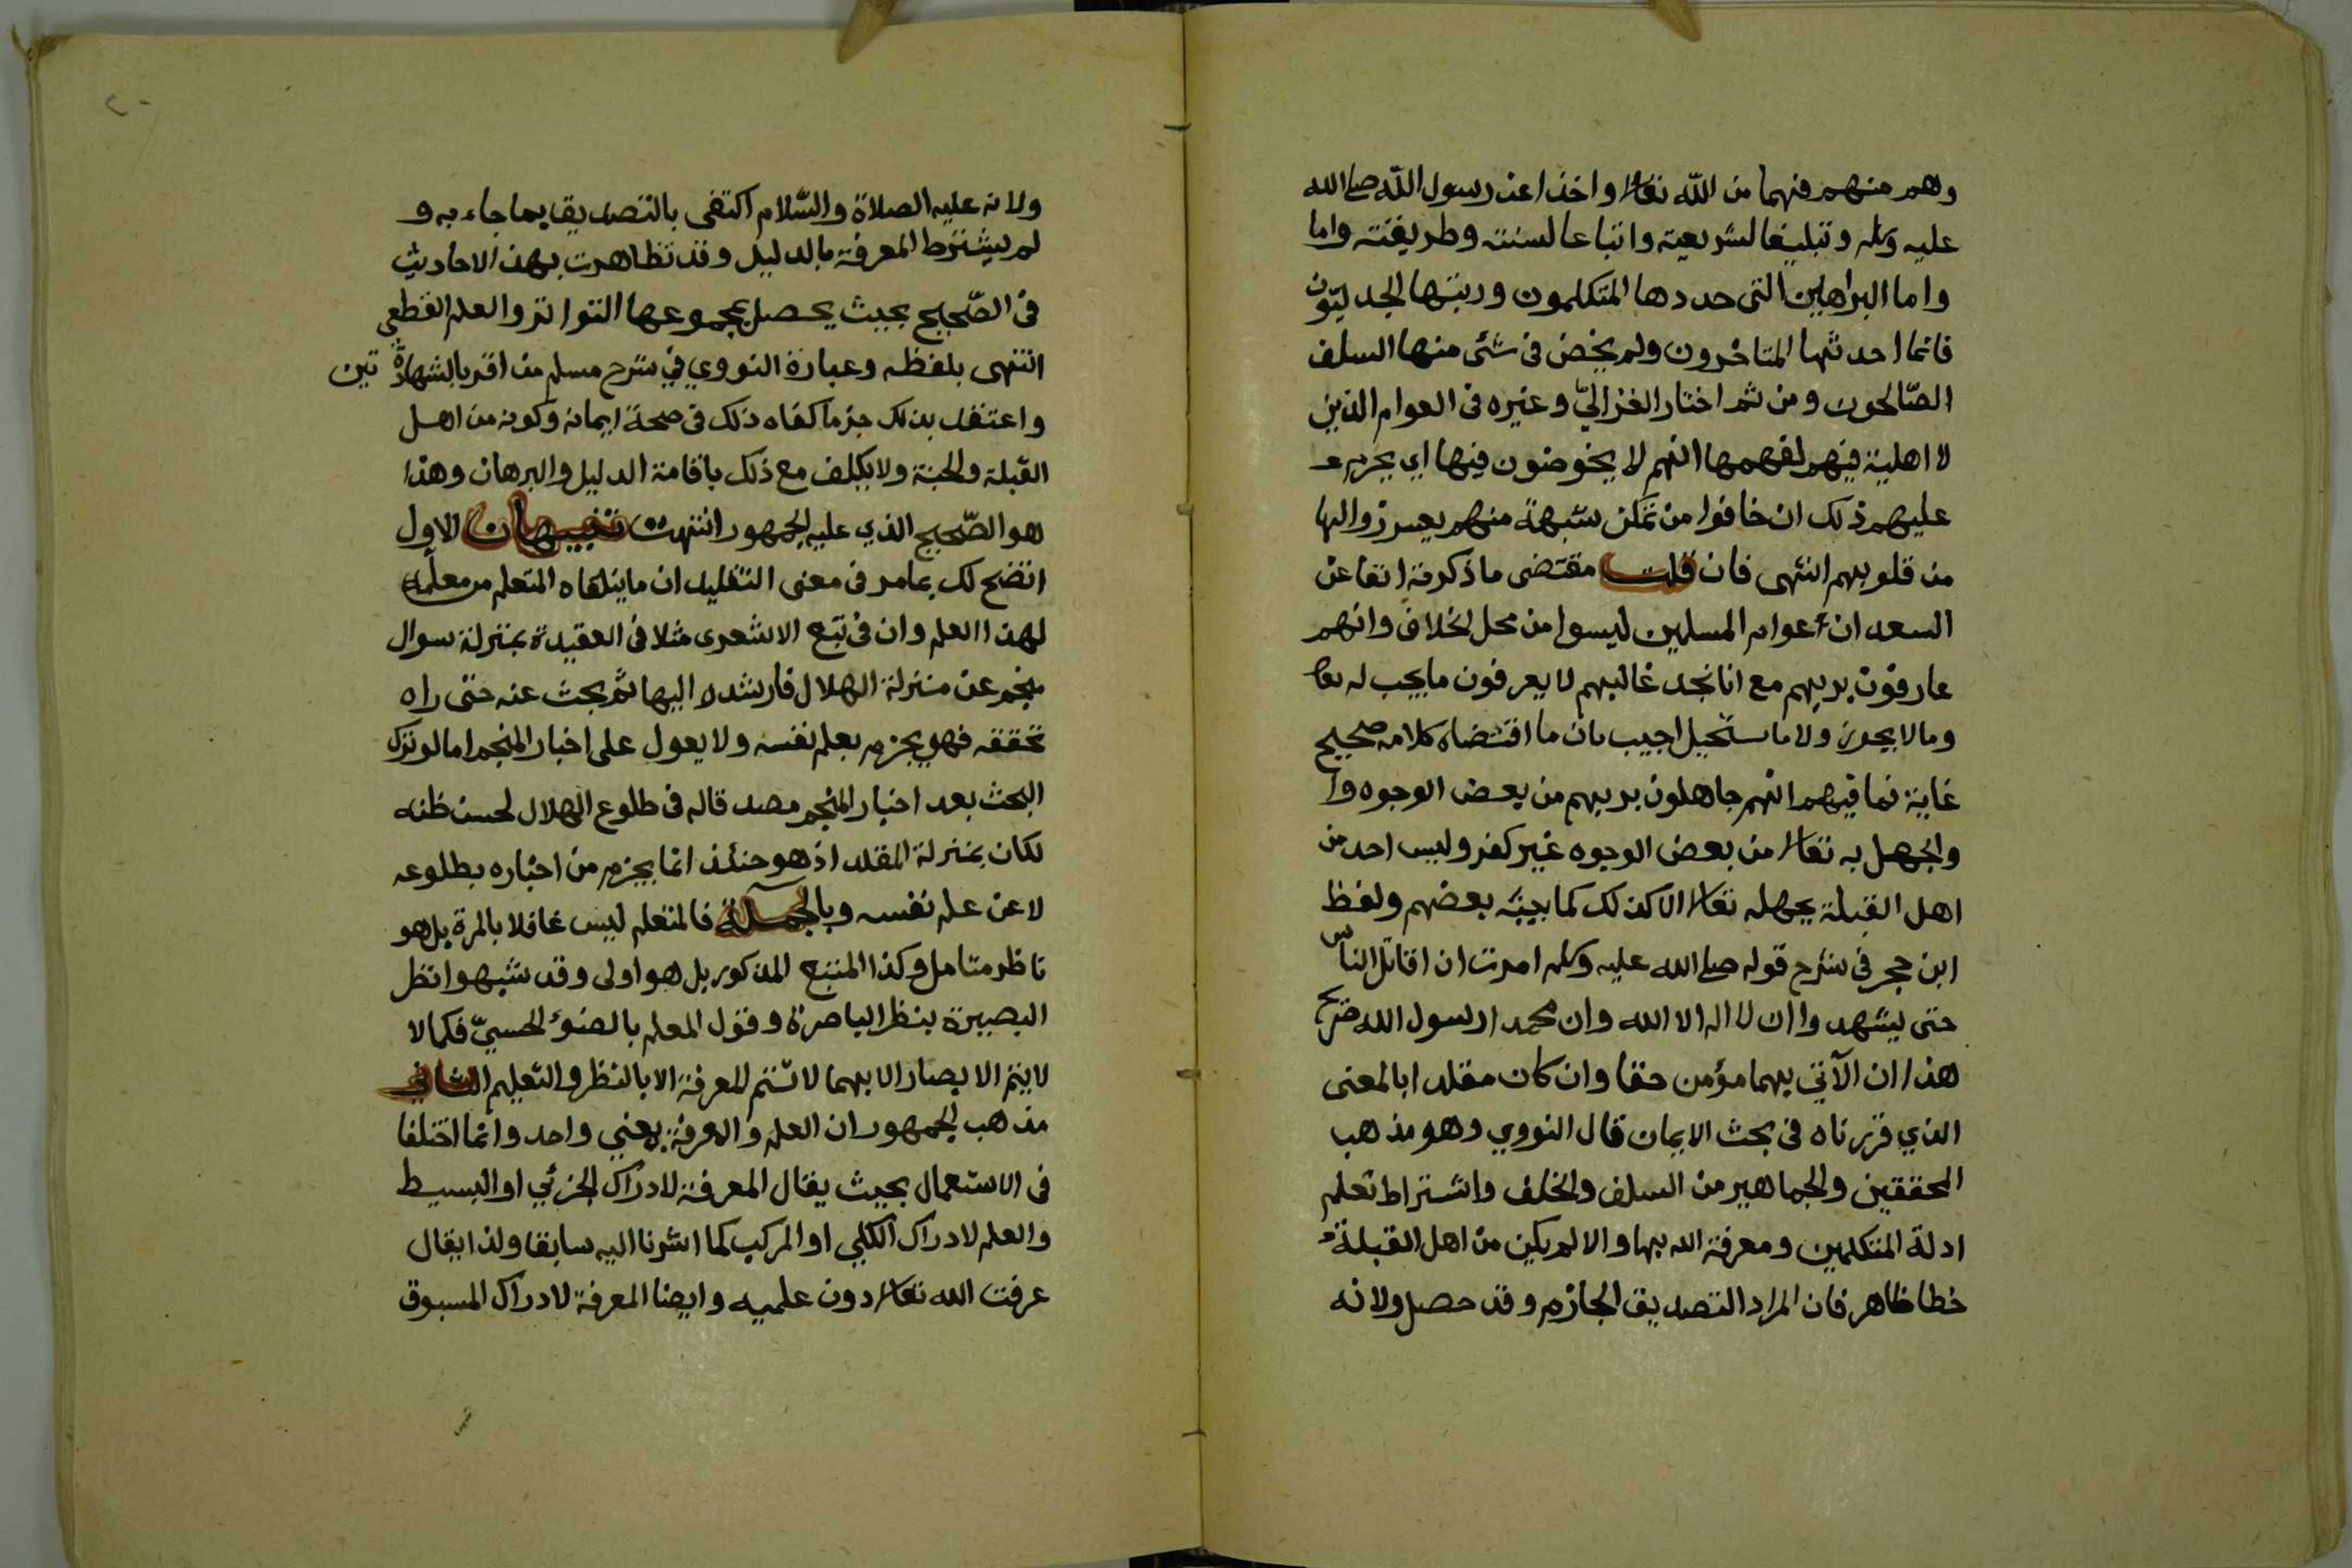 وهم منهم فنهما من الله تعالى واخذا عن رسول الله صلى الله
عليه وسلم وتبليغا لشريعته واتباعا لسنته وطريقته واما
واما البراهين التى حددها المتكلمون وربتها الجدليون
فانما احدثها المتاخرون ولم يخض فى شئ منها السلف
الصّالحون ومن ثم اختار الغزاليّ وغيره فى العوام الذين
لا اهلية فيهم لفهمها انهم لا يخوضون فيها اي يحرم
عليهم ذلك ان خافوا من تمكن شبهة منهم يعسر زوالها
من قلوبهم انتهى فان قلت مقتضى ما ذكرته انفا عن
السعد ان عوام المسلمين ليسوا من محل الخلاف وانهم
عارفون بربهم مع انا نجد غالبهم لا يعرفون ما يجب له تعالى
وما لا يجوز ولا ما يستحيل اجيب بان ما اقتضاه كلامه صحيح
غاية فما فيهم انهم جاهلون بربهم من بعض الوجوه وا
والجهل به تعالى من بعض الوجوه غير كفر وليس احد من
اهل القبلة يجهله تعالى الا كذلك كما بينه بعضهم ولفظ
ابن حجر فى شرح قوله صلى الله عليه وسلم امرت ان اقاتل الناس
حتى يشهدوا ان لا اله الا الله وان محمدا رسول الله صريح
هذا ان الآتي بهما مؤمن حقا وان كان مقلدا بالمعنى
الذي قررناه فى بحث الايمان قال النووي وهو مذهب
المحققين والجماهير من السلف والخلف واشتراط تعلم
ادلة المتكلمين ومعرفة الله بها والا لم يكن من اهل القبلة
خطا ظاهر فان المراد التصديق الجازم وقد حصل ولانه
ولانه عليه الصلاة والسّلام اكتفى بالتصديق بما جاء به و
لم يشترط المعرفة بالدليل وقد تظاهرت بهذا الاحاديث
فى الصّحيح بحيث يحصل بمجموعها التواتر والعلم القطعي
انتهى بلفظه وعبارة النووي في شرح مسلم من اقر بالشهادة تين
واعتقد بذلك جزما كفاه ذلك فى صحة ايمانه وكونه من اهل
القبلة والجنة ولا يكلف مع ذلك باقامة الدليل والبرهان وهذا
هو الصّحيح الذي عليه الجمهور انتهت تنبيهان الاول
اتضح لك بما مر فى معنى التقليد ان ما يتلقاه المتعلم من معلمه
لهذا العلم وان فى تتبع الاشعرى مثلا فى العقيدة بمنزلة سوال
منجم عن منزلة الهلال فارشده اليها ثم بحث عنه حتى راه
تحققه فهو يجزم بعلم نفسه ولا يعول على اخبار المنجم اما لو ترك
البحث بعد اخبار المنجم مصد قاله فى طلوع الهلال لحسن ظنه
لكان بمنزلة المقلد اذ هو حنئذ انما يجزم من اخباره بطلوعه
لا عن علم نفسه وبالجملة فالمتعلم ليس غافلا بالمرة بل هو
ناظر متامل وكذا المتتبع المذكور بل هو اولى وقد شبهوا نظر
البصيرة بنظر الباصرة وقول المعلم بالضوء الحسيّ فكما لا
لا يتم الا بصار الا بهما لا تتم المعرفة الا بالنظر والتعليم الثانى
مذهب الجمهور ان العلم والمعرفة بمعني واحد وانما اختلفا
فى الاستعمال بحيث يقال المعرفة لادراك الجزئي او البسيط
والعلم لادراك الكلي او المركب كما اشرنا اليه سابقا ولذا يقال
عرفت الله تعالى دون علميه وايضا المعرفة لادراك المسبوق